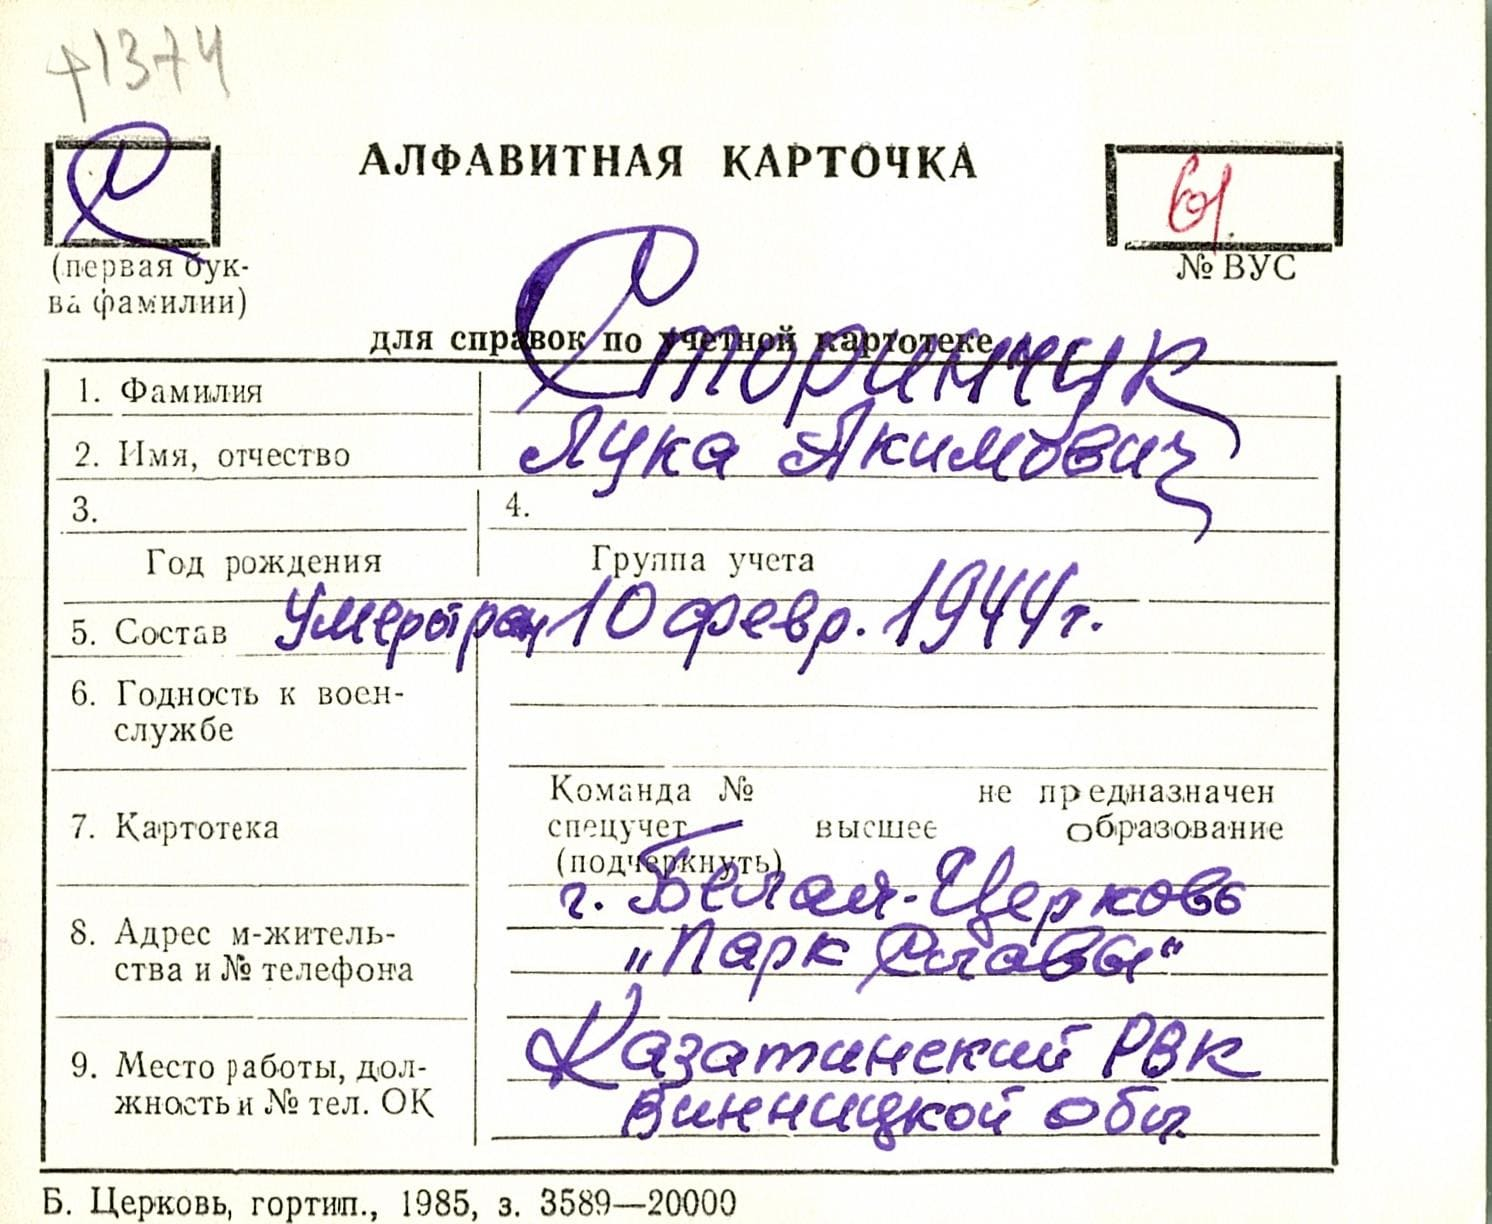 1374
С
АЛФАВИТНАЯ КАРТОЧКА
(первая бук-
ва фамилии)
№ ВУС
для справок по учетной картотеке
1. Фамилия Сторинчук
2. Имя, отчество Лука Акимович
3. 4.
Год рождения Группа учета
5. Состав Умер от ран 10 февр. 1944 г.
6. Годность к воен-
службе
Команда № не предназначен
7. Картотека спецучет высшее образование
(подчеркнуть)
г. Белая-Церковь
8. Адрес м-житель-
ства и № телефона „Парк Славы“
9. Место работы, дол- Казатинский РВК
жность и № тел. ОК Винницкой обл.
Б. Церковь, гортип., 1985, з. 3589—20000